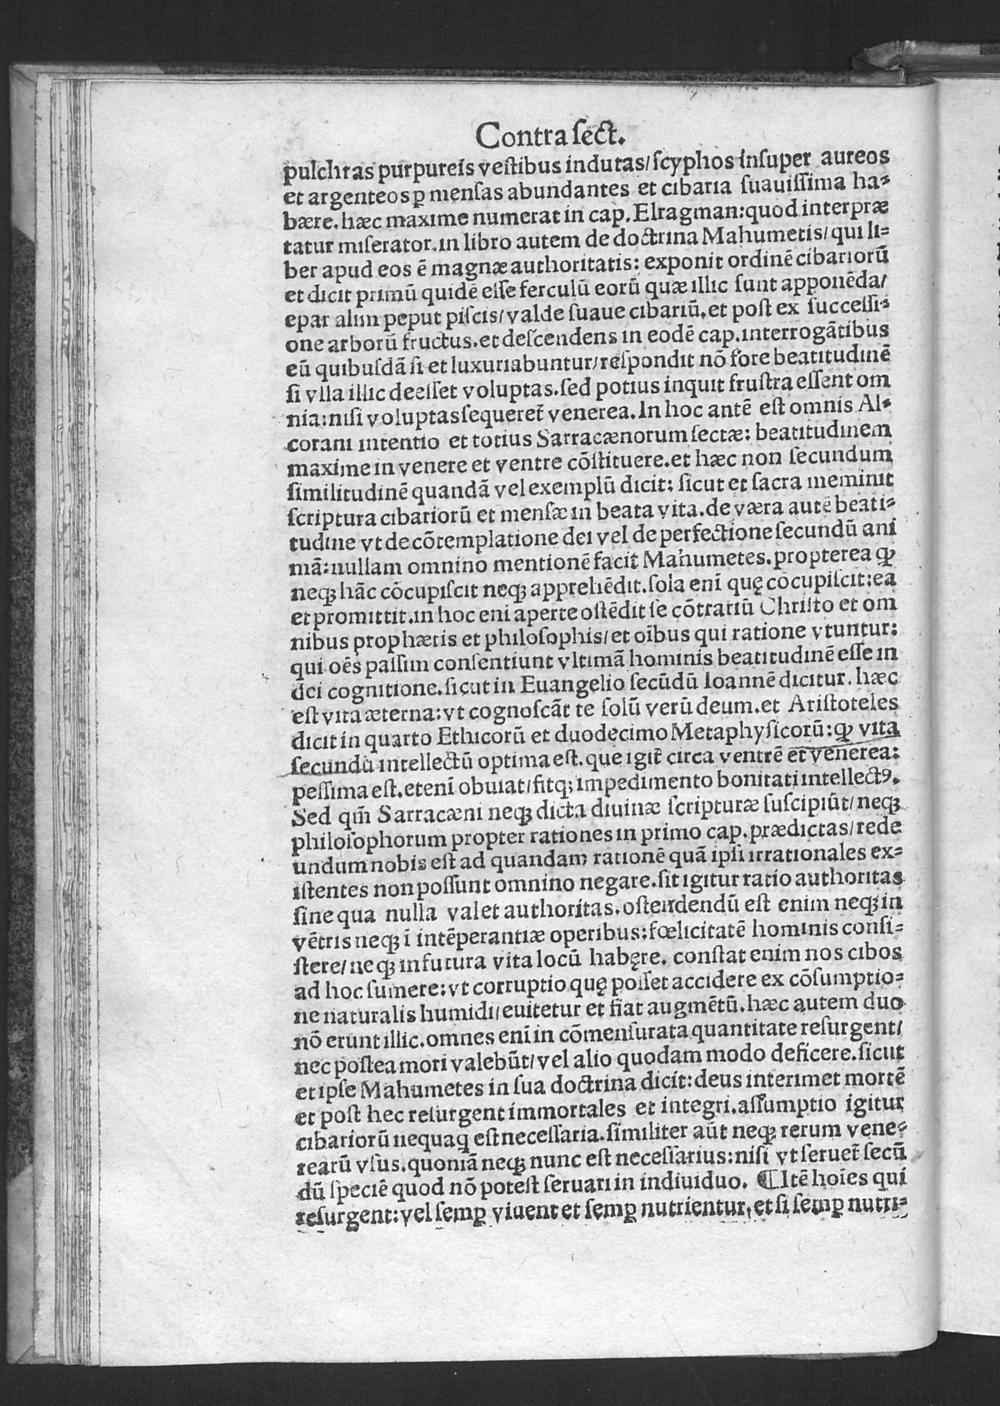 Contra sect.
pulchras purpureis vestibus indutas/scyphos insuper aureos
et argenteos ꝑ mensas abundantes et cibaria suauissima ha⸗
bære.hæc maxime numerat in cap.Elragman:quod interpræ
tatur miserator.in libro autem de doctrina Mahumetis/qui li⸗
ber apud eos ē magnæ authoritatis: exponit ordinē cibariorū
et dicit primū quidē esse ferculū eorū quæ illic sunt apponēda/
epar alim peput piscis/valde suaue cibariū.et post ex successi⸗
one arborū fructus.et descendens in eodē cap.interrogātibus
eū quibusdā si et luxuriabuntur/respondit nō fore beatitudinē
si vlla illic deesset voluptas.sed potius inquit frustra essent om
nia:nisi voluptas sequeret̃ venerea.In hoc antē est omnis Al⸗
corani intentio et totius Sarracænorum sectæ: beatitudinem
maxime in venere et ventre cōstituere.et hæc non secundum
similitudinē quandā vel exemplū dicit: sicut et sacra meminit
scriptura cibariorū et mensæ in beata vita.de væra autē beati⸗
tudine vt de cōtemplatione dei vel de perfectione secundū ani
mā:nullam omnino mentionē facit Mahumetes.propterea ꝙ
neqꝫ hāc cōcupiscit neqꝫ apprehēdit.sola enī quę cōcupiscit:ea
et promittit.in hoc eni aperte ostēdit se cōtrariū Christo et om
nibus prophætis et philosophis/et oībus qui ratione vtuntur:
qui oēs passim consentiunt vltimā hominis beatitudinē esse in
dei cognitione.sicut in Euangelio secūdū Ioannē dicitur.hæc
est vita æterna:vt cognoscāt te solū verū deum.et Aristoteles
dicit in quarto Ethicorū et duodecimo Metaphysicorū:ꝙ vita
secundū intellectū optima est.que igit̃ circa ventrē et venerea:
pessima est.etenī obuiat/fitqꝫ impedimento bonitati intellectꝰ.
Sed qm̄ Sarracæni neqꝫ dicta diuinæ scripturæ suscipiūt/neqꝫ
philosophorum propter rationes in primo cap.prædictas/rede
undum nobis est ad quandam rationē quā ipsi irrationales ex⸗
istentes non possunt omnino negare.sit igitur ratio authoritas
sine qua nulla valet authoritas.ostendendū est enim neqꝫ in
vētris neqꝫ ī intēperantiæ operibus:fœlicitatē hominis consi⸗
stere/neqꝫ in futura vita locū habęre. constat enim nos cibos
ad hoc sumere:vt corruptio quę posset accidere ex cōsumptio⸗
ne naturalis humidi/euitetur et fiat augmētū.hæc autem duo
nō erunt illic.omnes enī in cōmensurata quantitate resurgent/
nec postea mori valebūt/vel alio quodam modo deficere.sicut
et ipse Mahumetes in sua doctrina dicit:deus interimet mortē
et post hec resurgent immortales et integri.assumptio igitur
cibariorū nequaꝗ est necessaria.similiter aūt neqꝫ rerum vene⸗
rearū vsus.quoniā neqꝫ nunc est necessarius:nisi vt seruet̃ secū
dū speciē quod nō potest seruari in indiuiduo. ¶Itē hoīes qui
resurgent:vel semꝑ viuent et semꝑ nutrientur,et si semꝑ nutri⸗